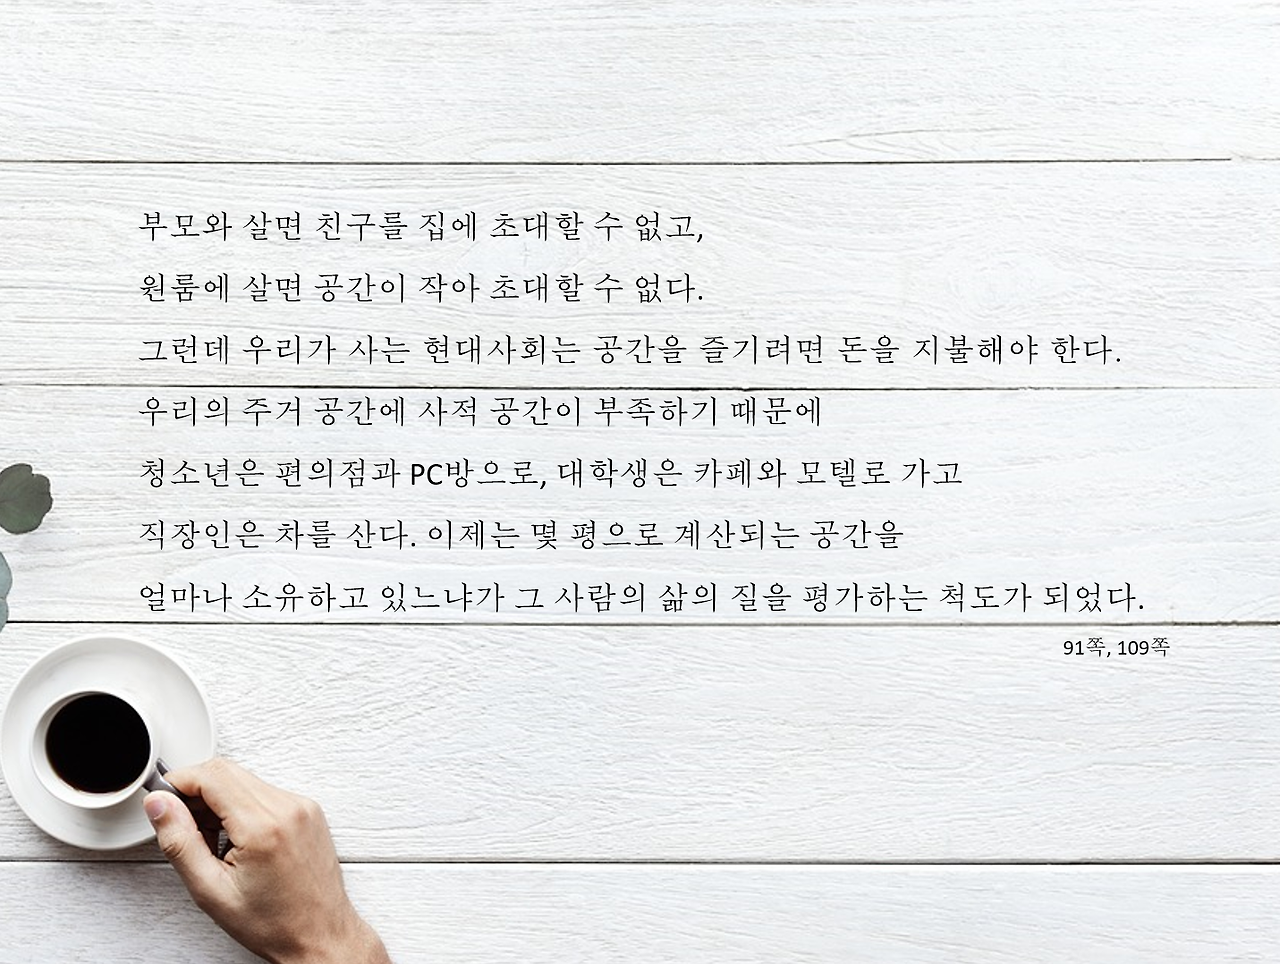 부모와 살면 친구를 집에 초대할 수 없고,
원룸에 살면 공간이 작아 초대할 수 없다.
그런데 우리가 사는 현대사회는 공간을 즐기려면 돈을 지불해야 한다.
우리의 주거 공간에 사적 공간이 부족하기 때문에
청소년은 편의점과 PC방으로, 대학생은 카페와 모텔로 가고
직장인은 차를 산다. 이제는 몇 평으로 계산되는 공간을
얼마나 소유하고 있느냐가 그 사람의 삶의 질을 평가하는 척도가 되었다.
91쪽, 109쪽